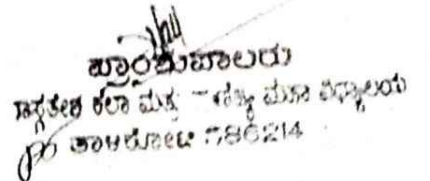 ಪ್ರಾಂಶುಪಾಲರು
ಕಲಾ ಮತ್ತು ಮಹಾ ವಿದ್ಯಾಲಯ
ತಾಳಿಕೋಟಿ 586214